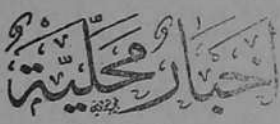 أخبار محلّيّة